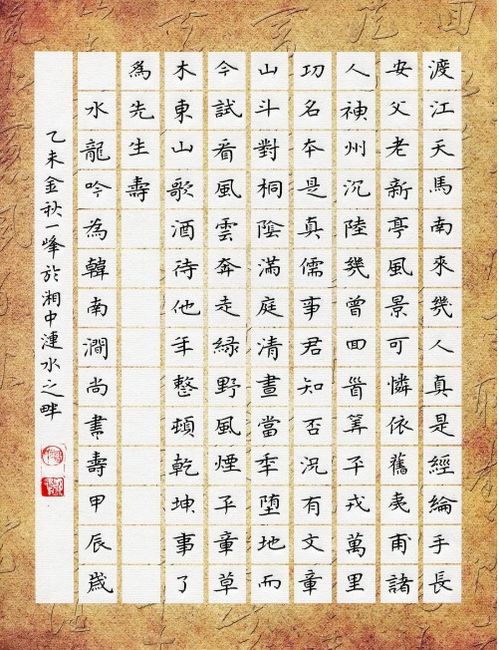 渡江天馬南來幾人真是經綸手長
安父老新亭風景可憐依舊夷甫諸
人神州沉陸幾曾回首算平戎萬里
功名本是真儒事君知否況有文章
山斗對桐陰滿庭清晝當年墮地而
今試看風雲奔走綠野風煙平章草
木東山歌酒待他年整頓乾坤事了
為先生壽
水龍吟為韓南澗尚書壽甲辰歲
乙未金秋一峰於湘中漣水之畔